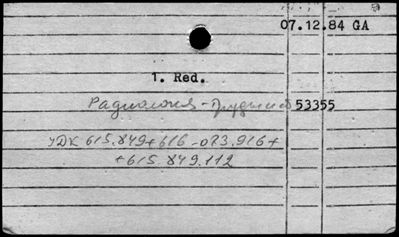 07.12.84 GA
1. Red.
53355
УДК 615.849+616-073.916+
+615.849.112